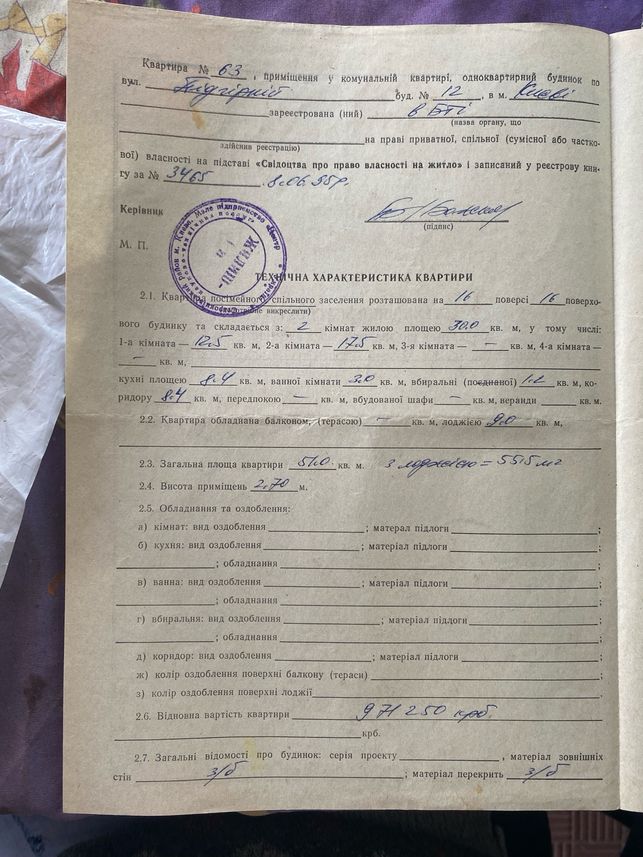 Квартира № 63, приміщення у комунальній квартирі, одноквартирний будинок по
вул. Підгірній буд. № 12, в м. Києві
зареєстрована (ний) в БТІ
(назва органу, що
на праві приватної, спільної (сумісної або частко-
здійснив реєстрацію)
вої) власності на підставі «Свідоцтва про право власності на житло» і записаний у реєстрову кни-
гу за № 3465 8.06.95р.
Керівник
(підпис)
М. П.
ТЕХНІЧНА ХАРАКТЕРИСТИКА КВАРТИРИ
2.1. Квартира посімейного, спільного заселення розташована на 16 поверсі 16 поверхо-
(потрібне викреслити)
вого будинку та складається з: 2 кімнат жилою площею 30.0 кв. м, у тому числі:
1-а кімната — 12.5 кв. м, 2-а кімната — 17.5 кв. м, 3-я кімната — — кв. м, 4-а кімната —
— кв. м,
кухні площею 8.4 кв. м, ванної кімнати 3.0 кв. м, вбиральні (поєднаної) 1.2 кв. м, ко-
ридору 8.4 кв. м, передпокою — кв. м, вбудованої шафи — кв. м, веранди кв. м.
2.2. Квартира обладнана балконом, (терасою) — кв. м, лоджією 9.0 кв. м,
2.3. Загальна площа квартири 51.0 кв. м. з лоджією = 55.5 м2
2.4. Висота приміщень 2.70 м.
2.5. Обладнання та оздоблення:
а) кімнат: вид оздоблення ; матерал підлоги ;
б) кухня: вид оздоблення ; матеріал підлоги
; обладнання ;
в) ванна: вид оздоблення ; матеріал підлоги
; обладнання ;
г) вбиральня: вид оздоблення ; матеріал підлоги
; обладнання ;
д) коридор: вид оздоблення ; матеріал підлоги ;
ж) колір оздоблення поверхні балкону (тераси) ;
з) колір оздоблення поверхні лоджії .
2.6. Відновна вартість квартири 971250 крб.
крб.
2.7. Загальні відомості про будинок: серія проекту , матеріал зовнішніх
стін з/б ; матеріал перекрить з/б ;